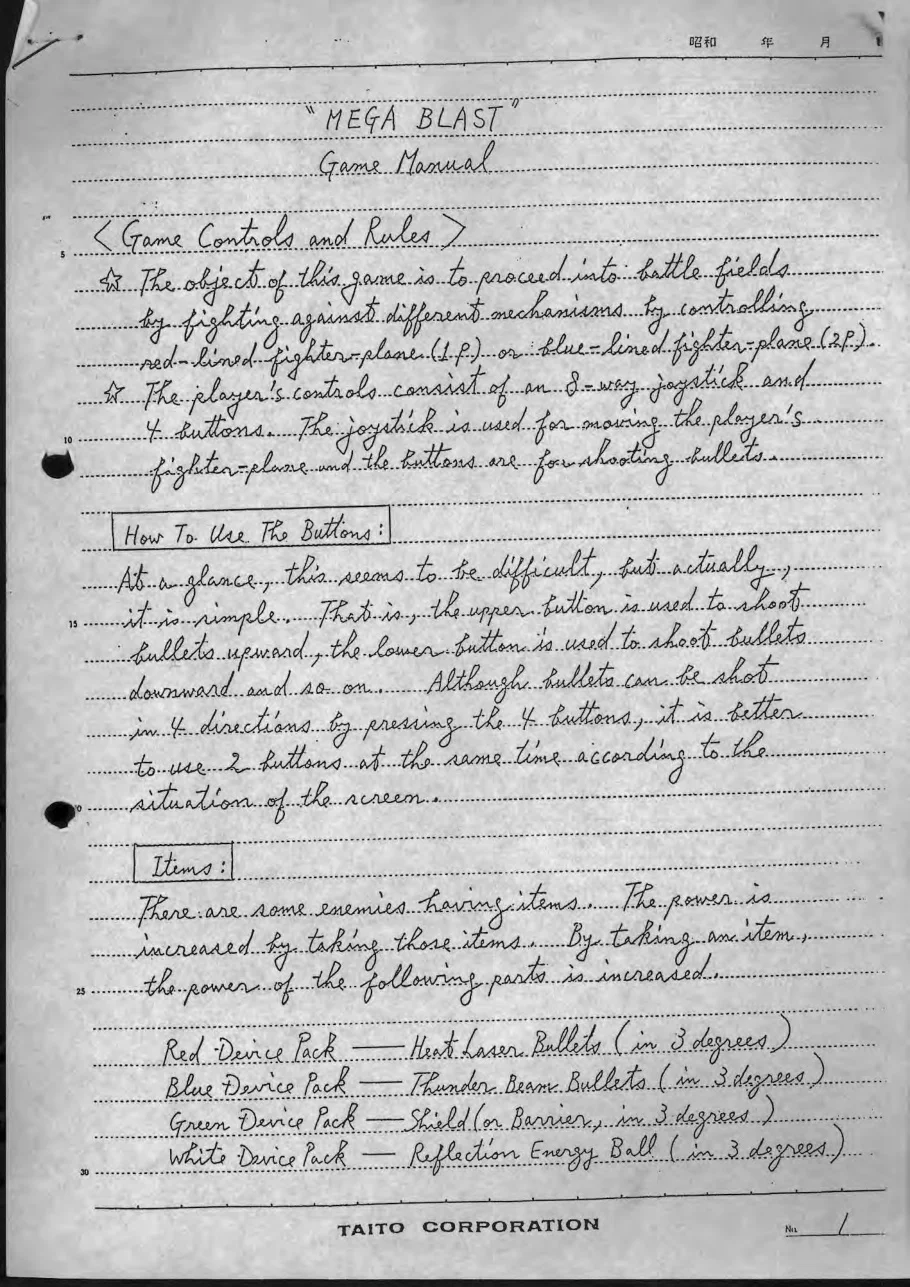 昭和 年 月
"MEGA BLAST"
Game Manual
<Game Controls and Rules>
5
☆ The object of this game is to proceed into battle fields
by fighting against different mechanisms by controlling
red-lined fighter-plane (1P.) or blue-lined fighter-plane (2P.).
☆ The player's controls consist of an 8-way joystick and
4 buttons. The joystick is used for moving the player's
10
fighter-plane and the buttons are for shooting bullets.
How To Use The Buttons:
At a glance, this seems to be difficult, but actually,
it is simple. That is, the upper button is used to shoot
15
bullets upward, the lower button is used to shoot bullets
downward and so on. Although bullets can be shot
in 4 directions by pressing the 4 buttons, it is better
to use 2 buttons at the same time according to the
situation of the screen.
Items:
There are some enemies having items. The power is
increased by taking those items. By taking an item,
the power of the following parts is increased.
25
Red Device Pack — Heat Laser Bullets (in 3 degrees)
Blue Device Pack — Thunder Beam Bullets (in 3 degrees)
Green Device Pack — Shield (or Barrier, in 3 degrees)
White Device Pack — Reflection Energy Ball (in 3 degrees)
30
TAITO CORPORATION
No. 1